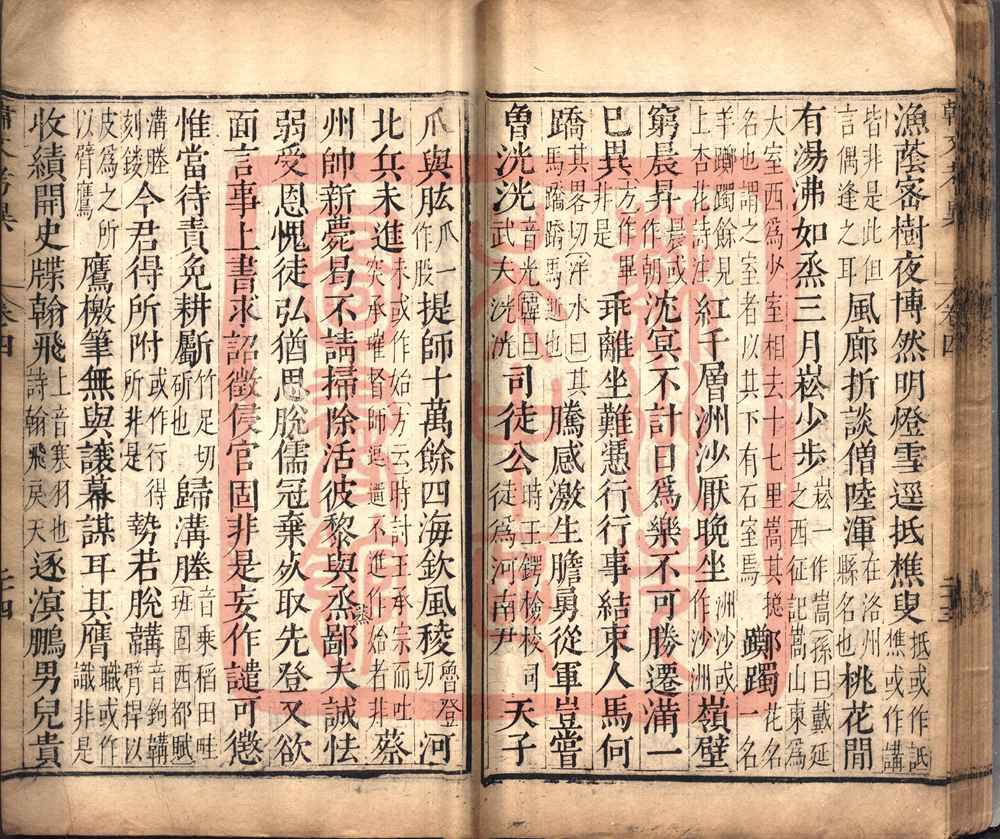 漁蔭密樹夜博然明燈雪逕抵樵叟抵或作詆樵或作譙
皆非是此但言偶逢之耳風廊折談僧陸渾在洛州縣名也桃花閒
有湯沸如烝三月崧少步崧一作嵩孫曰戴延之西征記嵩山東爲
大室西爲少室相去十七里嵩其摠名也謂之室者以其下有石室焉躑躅一名
羊躑躅餘見上杏花詩注紅千層洲沙厭晚坐洲沙或作沙洲嶺壁
窮晨昇晨或作朝沈冥不計日爲樂不可勝遷滿一
巳異方作畢非是乖離坐難憑行行事結束人馬何
蹻其畧切泮水曰其馬蹻蹻馬逝也騰感激生膽勇從軍豈嘗
曾洸洸音光韓曰武夫洸洸司徒公時王鍔檢校司徒爲河南尹天子
爪與肱爪一作股提師十萬餘四海欽風稜魯登切河
北兵未進未或作始方云時討王承宗而吐突承璀督師逗遛不進作始者非蔡
州帥新薨曷不請掃除活彼黎與烝鄙夫誠怯
弱受恩愧徒弘猶思脫儒冠棄死取先登又欲
面言事上書求詔徵侵官固非是妄作譴可懲
惟當待責免耕斸竹足切斫也歸溝塍音乘稻田畦班固西都賦
溝塍刻鏤今君得所附或作行得所非是勢若脫韝音鉤韝臂捍以
皮爲之所以臂鷹鷹檄筆無與讓幕謀耳其膺職或作識非是
收績開史牒翰飛上音寒羽也詩翰飛戾天逐溟鵬男兒貴